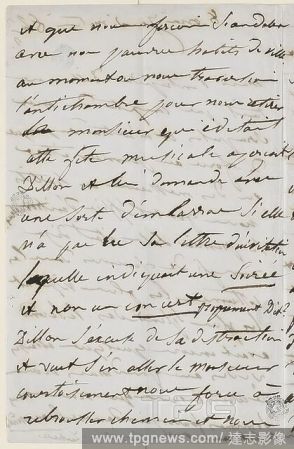 et que nous ferions scandale
avec nos pauvres habits de ville
au moment ou nous traversions
l'antichambre pour nous retirer
monsieur qui
cette fête musicale aperçoit
Dillon et lui demande avec
une sorte d'embarras si elle
n'a pas lu sa lettre d'invitation
laquelle indiquait une soirée
et non un concert proprement dit
Dillon s'excuse de sa distraction
et veut s'en aller le monsieur
courtoisement nous force à
rebrousser chemin et nous
www.tpgnews.com / 達志影像